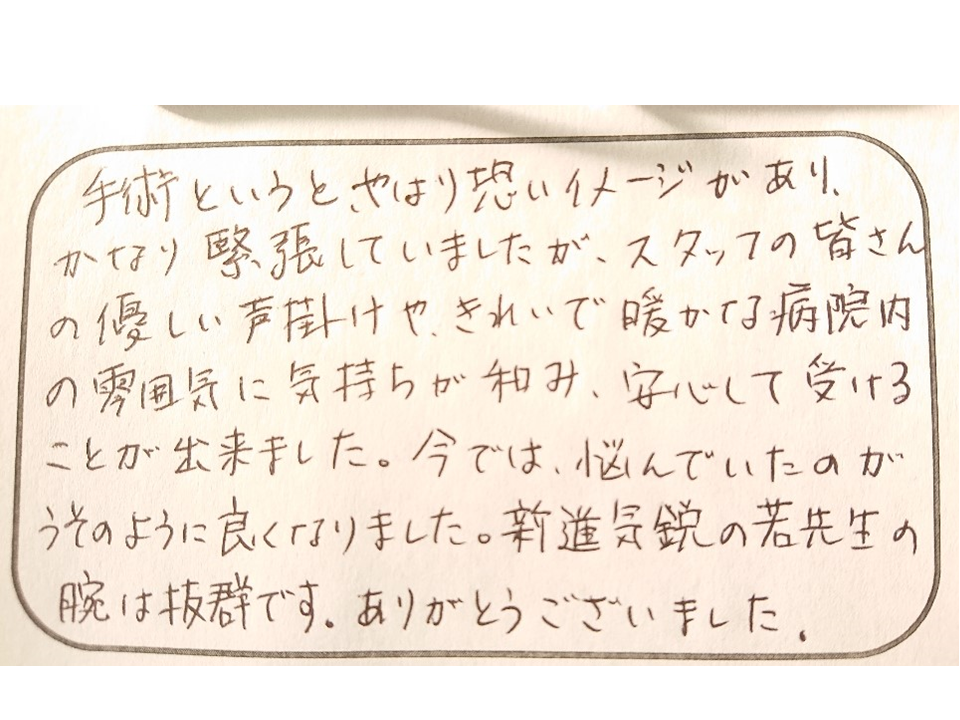 手術というと、やはり恐いイメージがあり、
かなり緊張していましたが、スタッフの皆さん
の優しい声掛けや、きれいで暖かなる病院内
の雰囲気に気持ちが和み、安心して受ける
ことが出来ました。今では、悩んでいたのが
うそのように良くなりました。新進気鋭の若先生の
腕は抜群です。ありがとうございました。